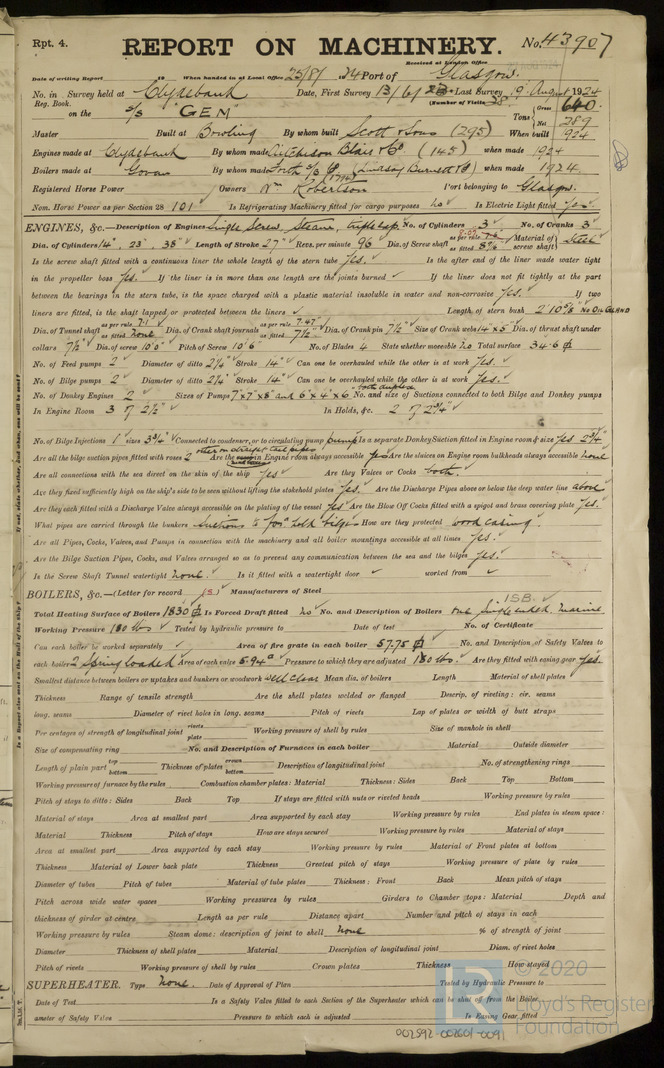 Rpt. 4. REPORT ON MACHINERY. No. 43907
Received at London Office
Date of writing Report 19 When handed in at Local Office 25/8/ 24 Port of Glasgow.
No. in Survey held at Clydebank Date, First Survey 13/6/23 Last Survey 19 August 1924
Reg. Book. (Number of Visits 38)
on the S/S "GEM" Tons Gross 640 Net 289
Master Built at Bowling By whom built Scott & Sons (295) When built 924
Engines made at Clydebank By whom made Aitchison Blair & Co (145) when made 1924
Boilers made at Govan By whom made (Lindsay Burnett & Co) when made 1924
Registered Horse Power Owners Wm Robertson Port belonging to Glasgow.
Nom. Horse Power as per Section 28 101 Is Refrigerating Machinery fitted for cargo purposes no Is Electric Light fitted Yes
ENGINES, &c.—Description of Engines Single Screw Steam, triple exp. No. of Cylinders 3 No. of Cranks 3
Dia. of Cylinders 14" 23" 38" Length of Stroke 27" Revs. per minute 96 Dia. of Screw shaft as per rule as fitted 8 7/8 Material of screw shaft Steel
Is the screw shaft fitted with a continuous liner the whole length of the stern tube Yes. Is the after end of the liner made water tight
in the propeller boss Yes. If the liner is in more than one length are the joints burned If the liner does not fit tightly at the part
between the bearings in the stern tube, is the space charged with a plastic material insoluble in water and non-corrosive Yes. If two
liners are fitted, is the shaft lapped or protected between the liners Length of stern bush 2' 10 5/8 No OIL GLAND
Dia. of Tunnel shaft as per rule 7.1 as fitted none Dia. of Crank shaft journals as per rule 7.47 as fitted 7 1/2 Dia. of Crank pin 7 1/2" Size of Crank webs 14" x 5" Dia. of thrust shaft under
collars 7 1/2 Dia. of screw 10' 0" Pitch of Screw 10' 6" No. of Blades 4 State whether moveable no Total surface 34.6
No. of Feed pumps 2 Diameter of ditto 2 1/4" Stroke 14" Can one be overhauled while the other is at work Yes.
No. of Bilge pumps 2 Diameter of ditto 2 1/4" Stroke 14" Can one be overhauled while the other is at work Yes.
No. of Donkey Engines 2 Sizes of Pumps 7" x 7" x 8" and 6" x 4" x 6" both duplex No. and size of Suctions connected to both Bilge and Donkey pumps
In Engine Room 3 of 2 1/2" In Holds, &c. 2 of 2 3/4"
No. of Bilge Injections 1 sizes 3 3/4" Connected to condenser, or to circulating pump pump Is a separate Donkey Suction fitted in Engine room & size Yes 2 3/4"
Are all the bilge suction pipes fitted with roses 2 other on straight tail pipes Are the in Engine room always accessible Yes Are the sluices on Engine room bulkheads always accessible none
Are all connections with the sea direct on the skin of the ship Yes Are they Valves or Cocks both.
Are they fixed sufficiently high on the ship's side to be seen without lifting the stokehold plates Yes. Are the Discharge Pipes above or below the deep water line above
Are they each fitted with a Discharge Valve always accessible on the plating of the vessel Yes Are the Blow Off Cocks fitted with a spigot and brass covering plate Yes.
What pipes are carried through the bunkers Suctions to for'd hold bilges How are they protected wood casing.
Are all Pipes, Cocks, Valves, and Pumps in connection with the machinery and all boiler mountings accessible at all times Yes.
Are the Bilge Suction Pipes, Cocks, and Valves arranged so as to prevent any communication between the sea and the bilges Yes.
Is the Screw Shaft Tunnel watertight None. Is it fitted with a watertight door worked from
BOILERS, &c.—(Letter for record (S)) Manufacturers of Steel 1SB.
Total Heating Surface of Boilers 1830 Is Forced Draft fitted no No. and Description of Boilers One single ended, marine
Working Pressure 180 lbs Tested by hydraulic pressure to Date of test No. of Certificate
Can each boiler be worked separately Area of fire grate in each boiler 57.75 No. and Description of Safety Valves to
each boiler 2 Spring loaded Area of each valve 5.94" Pressure to which they are adjusted 180 lbs. Are they fitted with easing gear Yes.
Smallest distance between boilers or uptakes and bunkers or woodwork well clear Mean dia. of boilers Length Material of shell plates
Thickness Range of tensile strength Are the shell plates welded or flanged Descrip. of riveting: cir. seams
long. seams Diameter of rivet holes in long. seams Pitch of rivets Lap of plates or width of butt straps
Per centages of strength of longitudinal joint rivets plate Working pressure of shell by rules Size of manhole in shell
Size of compensating ring No. and Description of Furnaces in each boiler Material Outside diameter
Length of plain part top bottom Thickness of plates crown bottom Description of longitudinal joint No. of strengthening rings
Working pressure of furnace by the rules Combustion chamber plates: Material Thickness: Sides Back Top Bottom
Pitch of stays to ditto: Sides Back Top If stays are fitted with nuts or riveted heads Working pressure by rules
Material of stays Area at smallest part Area supported by each stay Working pressure by rules End plates in steam space:
Material Thickness Pitch of stays How are stays secured Working pressure by rules Material of stays
Area at smallest part Area supported by each stay Working pressure by rules Material of Front plates at bottom
Thickness Material of Lower back plate Thickness Greatest pitch of stays Working pressure of plate by rules
Diameter of tubes Pitch of tubes Material of tube plates Thickness: Front Back Mean pitch of stays
Pitch across wide water spaces Working pressures by rules Girders to Chamber tops: Material Depth and
thickness of girder at centre Length as per rule Distance apart Number and pitch of stays in each
Working pressure by rules Steam dome: description of joint to shell None % of strength of joint
Diameter Thickness of shell plates Material Description of longitudinal joint Diam. of rivet holes
Pitch of rivets Working pressure of shell by rules Crown plates Thickness How stayed
SUPERHEATER. Type None. Date of Approval of Plan Tested by Hydraulic Pressure to
Date of Test Is a Safety Valve fitted to each Section of the Superheater which can be shut off from the Boiler
ameter of Safety Valve Pressure to which each is adjusted Is Easing Gear fitted
© 2020
Lloyd's Register
Foundation
002592-002601-0091